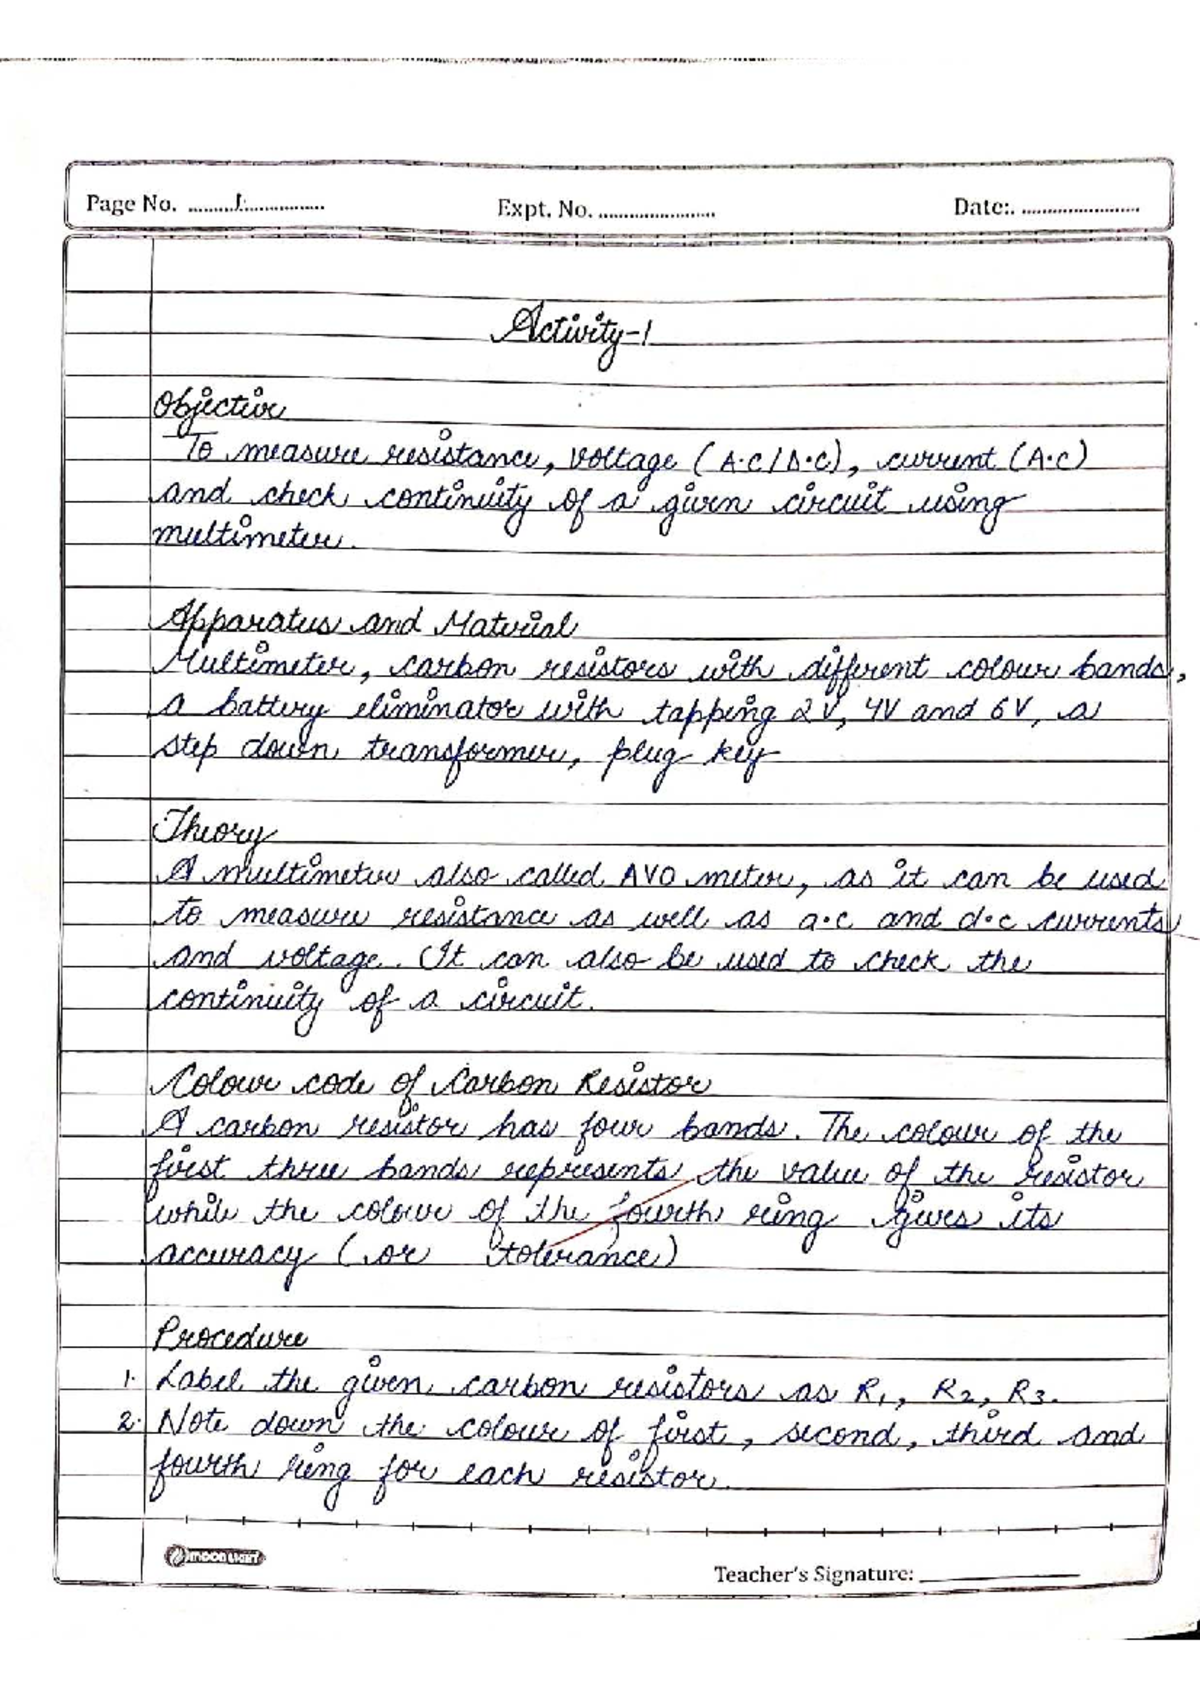 Page No. ..........1............... Expt. No. ........................ Date:. ........................
Activity-1
Objective
To measure resistance, voltage (A.C/D.C), current (A.C)
and check continuity of a given circuit using
multimeter.
Apparatus and Material
Multimeter, carbon resistors with different colour bands,
a battery eliminator with tapping 2V, 4V and 6V, a
step down transformer, plug key
Theory
A multimeter also called AVO meter, as it can be used
to measure resistance as well as a.c and d.c currents
and voltage. It can also be used to check the
continuity of a circuit.
Colour code of Carbon Resistor
A carbon resistor has four bands. The colour of the
first three bands represents the value of the resistor
while the colour of the fourth ring gives its
accuracy (or tolerance)
Procedure
1. Label the given carbon resistors as R1, R2, R3.
2. Note down the colour of first, second, third and
fourth ring for each resistor.
MOONLIGHT
Teacher's Signature: ________________